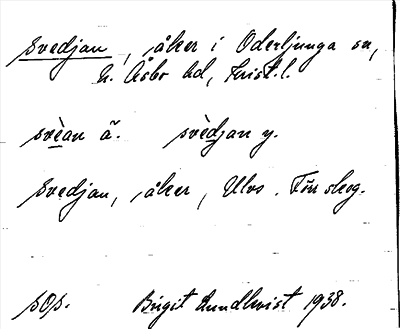 Svedjan, åker i Oderljunga sn,
N. Åsbo hd, Krist. l.
svèan ä. svèdjan y.
Svedjan, åker, Ulvs. Förr skog.
sOp. Birgit Lundkvist 1938.